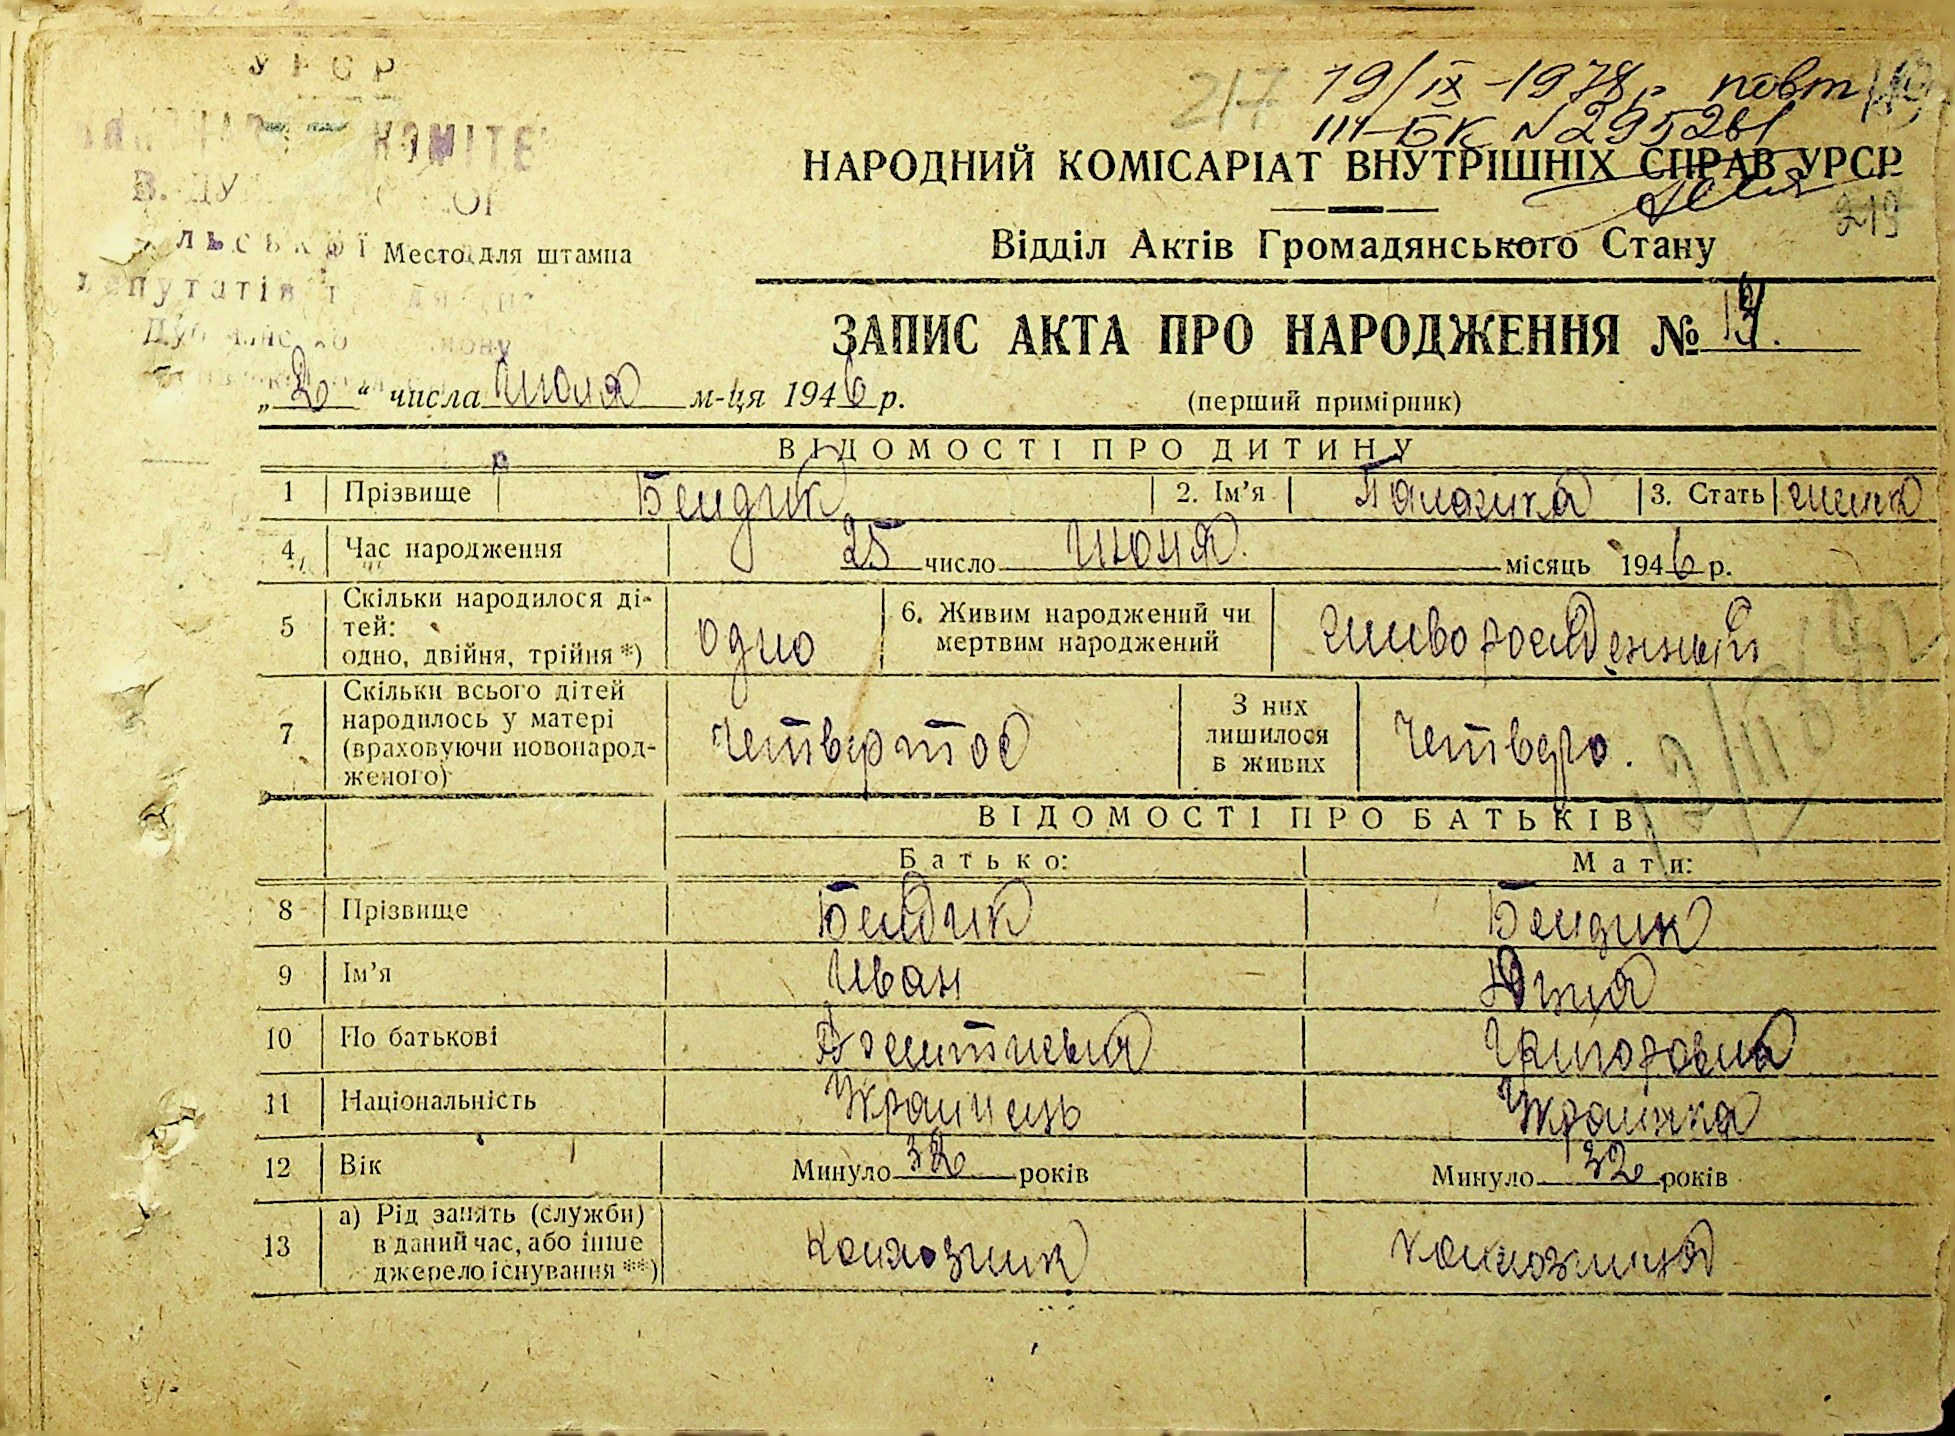 УРСР
КОМІТЕ
217 19/IX-1978р. повт
III-БК №295261
НАРОДНИЙ КОМІСАРІАТ ВНУТРІШНІХ СПРАВ УРСР
219
льської Место для штампа
Відділ Актів Громадянського Стану
депутатів
ЗАПИС АКТА ПРО НАРОДЖЕННЯ №
„2" числа июля м-ця 1946 р.
(перший примірник)
ВІДОМОСТІ ПРО ДИТИНУ
1 Прізвище Бендик 2. Ім'я 3. Стать женск
4 Час народження 25 число июня місяць 1946 р.
5 Скільки народилося ді-
тей:
одно, двійня, трійня *) одно 6. Живим народжений чи
мертвим народжений живорожденный
7 Скільки всього дітей
народилось у матері
(враховуючи новонарод-
женого) четвертое З них
лишилося
в живих Четверо.
ВІДОМОСТІ ПРО БАТЬКІВ
Батько: Мати:
8 Прізвище Бендик Бендик
9 Ім'я Иван
10 По батькові Григоровна
11 Національність Украинець Украинка
12 Вік Минуло 32 років Минуло 32 років
13 а) Рід занять (служби)
в даний час, або інше
джерело існування **) колхозник колхозница